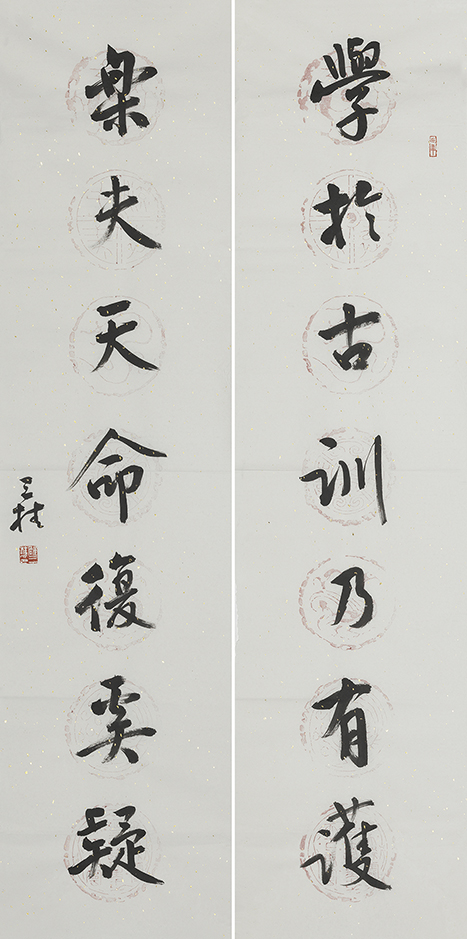 學於古訓乃有護
樂夫天命復奚疑